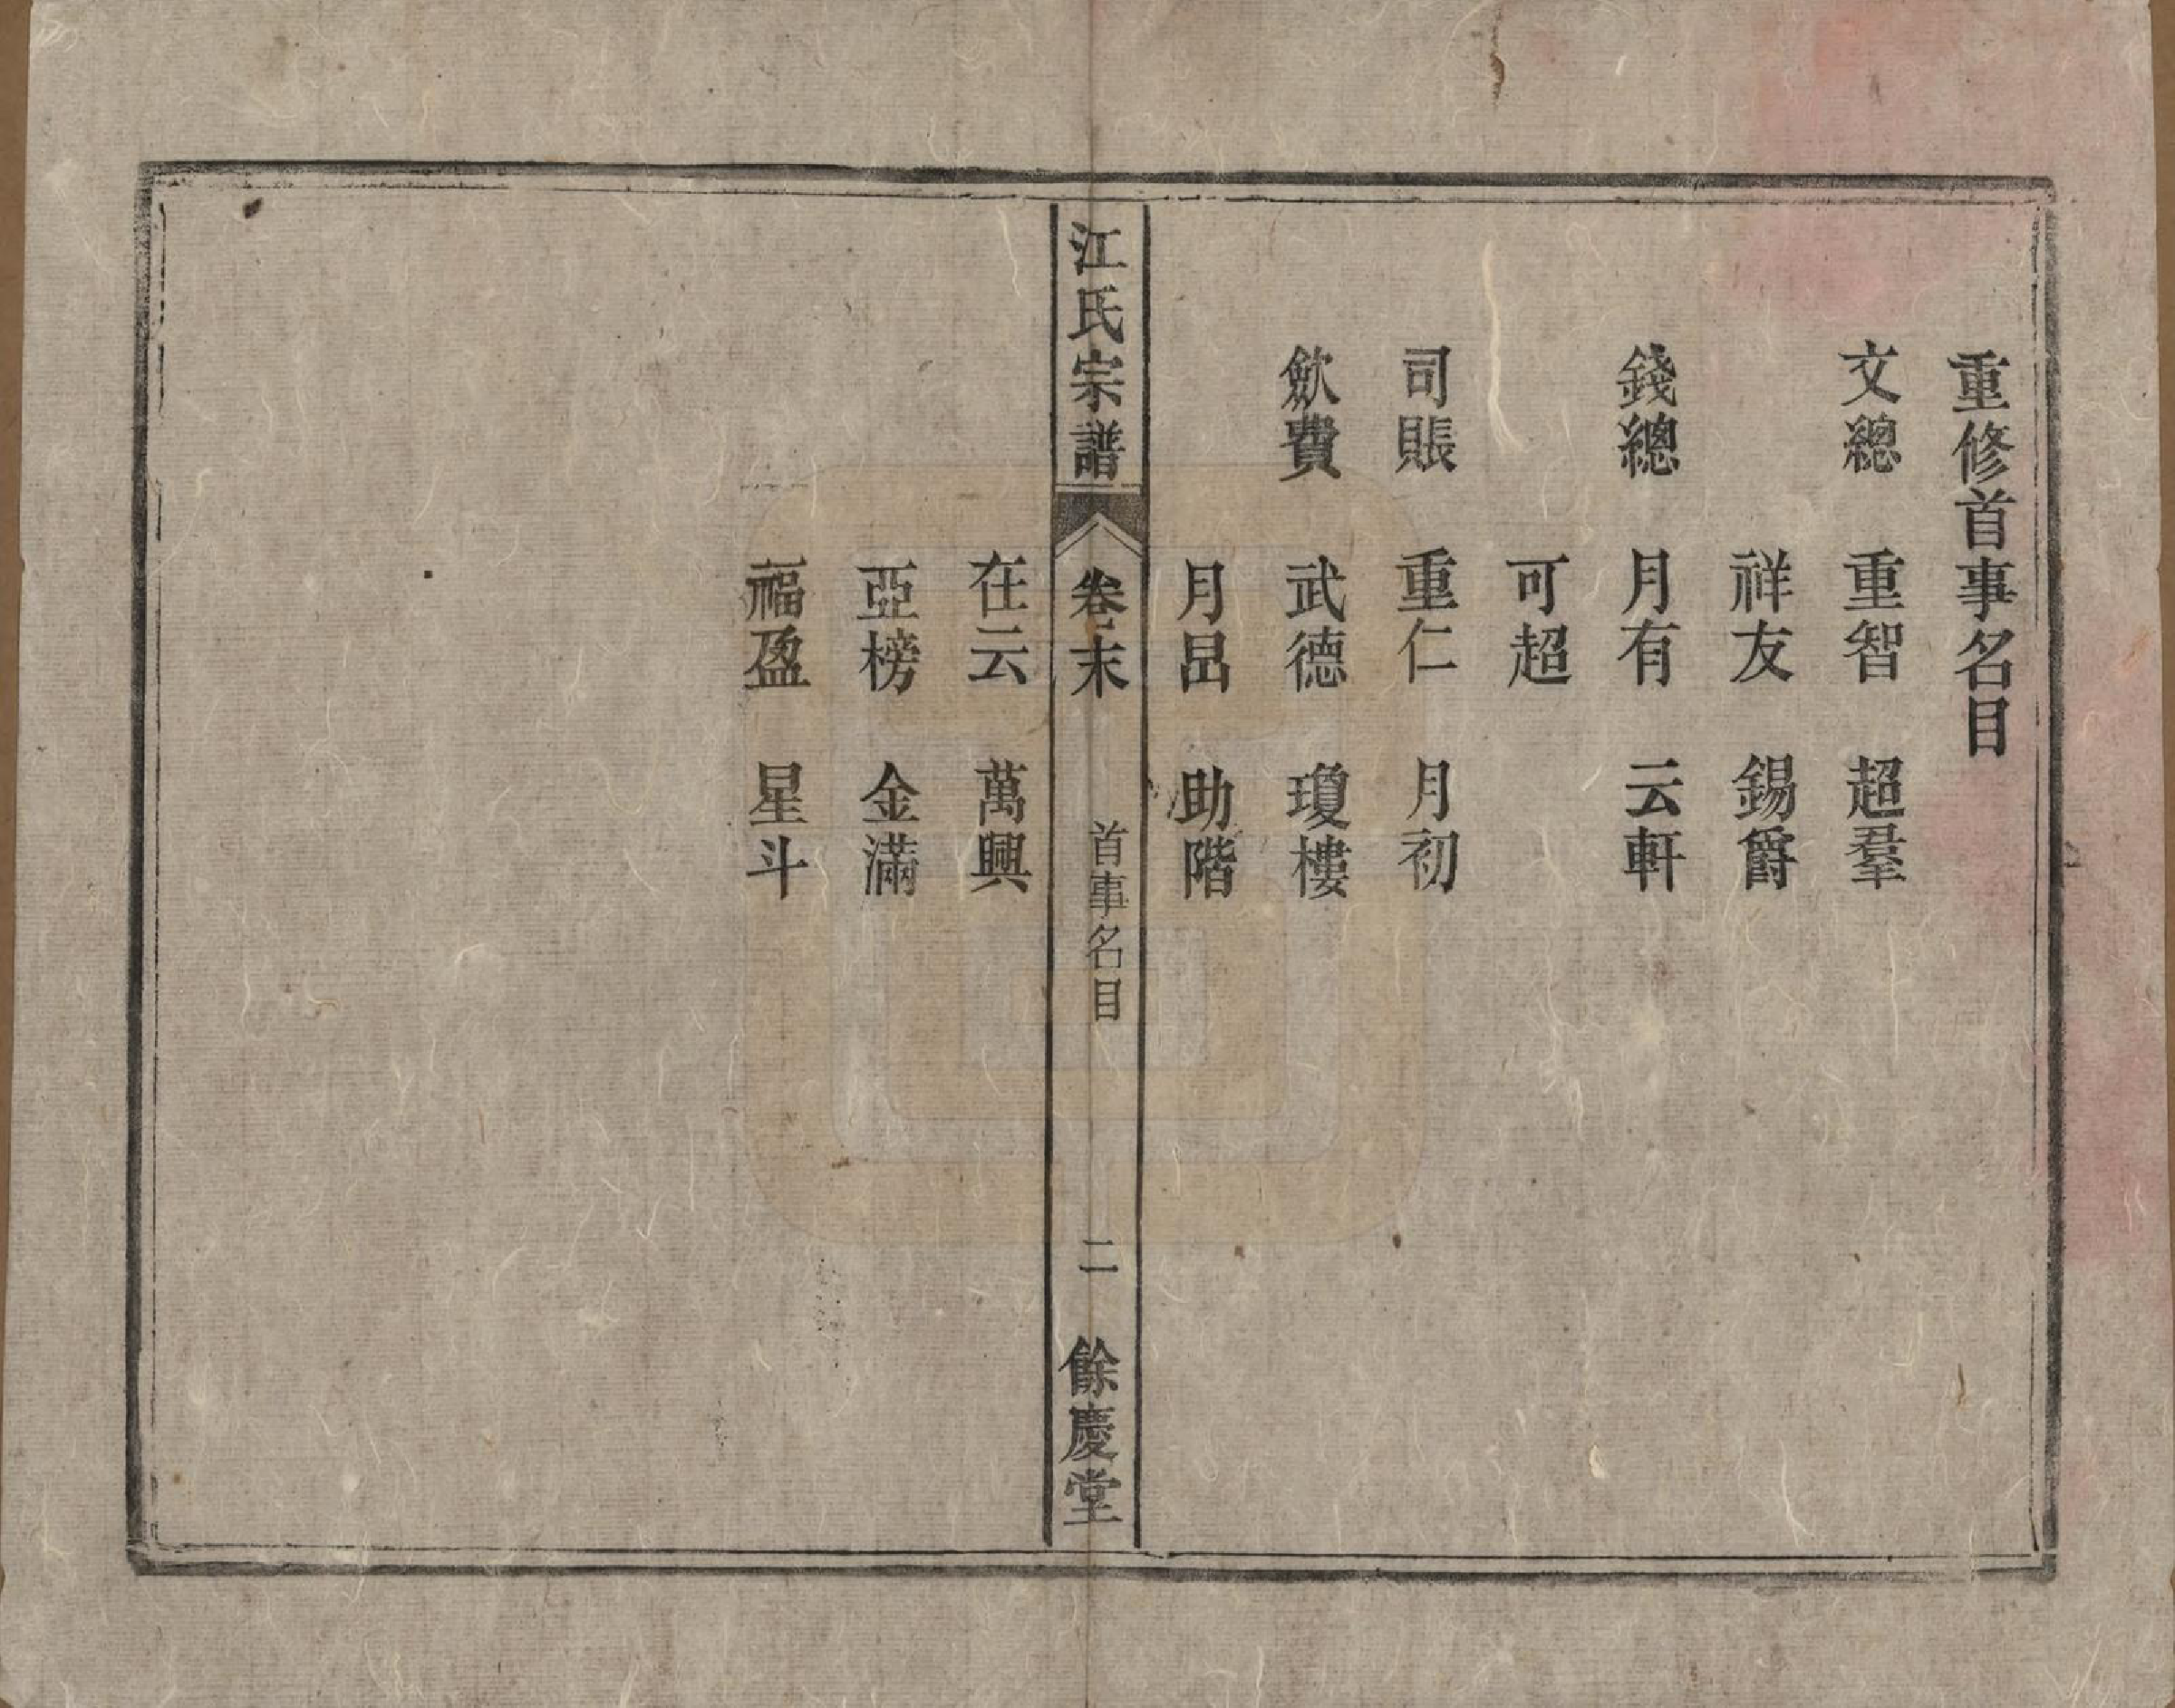 重修首事名目
文總　重智　超羣
祥友　錫爵
錢總　月有　云軒
可超
司賬　重仁　月初
歛費　武德　瓊樓
月昌　助階
江氏宗譜　卷末　首事名目　二　餘慶堂
在云　萬興
亞榜　金滿
福盈　星斗